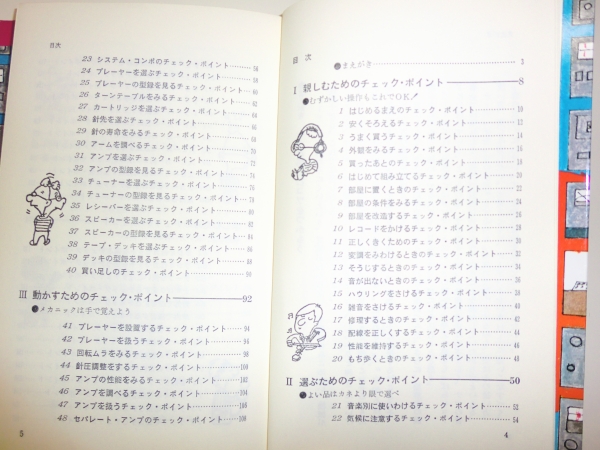 目次
●まえがき……
I 親しむためのチェック・ポイント——8
●むずかしい操作もこれでOK！
1 はじめるまえのチェック・ポイント……10
2 安くそろえるチェック・ポイント……12
3 うまく買うチェック・ポイント……14
4 外観をみるチェック・ポイント……16
5 買ったあとのチェック・ポイント……18
6 はじめて組み立てるチェック・ポイント……20
7 部屋に置くときのチェック・ポイント……22
8 部屋の条件をみるチェック・ポイント……24
9 部屋を改造するチェック・ポイント……26
10 レコードをかけるチェック・ポイント……28
11 正しくきくためのチェック・ポイント……30
12 変調をみわけるときのチェック・ポイント……32
13 そうじするときのチェック・ポイント……34
14 音が出ないときのチェック・ポイント……36
15 ハウリングをさけるチェック・ポイント……38
16 雑音をさけるチェック・ポイント……40
17 修理するときのチェック・ポイント……42
18 配線を正しくするチェック・ポイント……44
19 性能を維持するチェック・ポイント……46
20 もち歩くときのチェック・ポイント……48
II 選ぶためのチェック・ポイント——50
●よい品はカネより眼で選べ
21 音楽別に使いわけるチェック・ポイント……52
22 気候に注意するチェック・ポイント……54
4
目次
23 システム・コンポのチェック・ポイント……56
24 プレーヤーを選ぶチェック・ポイント……58
25 プレーヤーの型録を見るチェック・ポイント……60
26 ターンテーブルをみるチェック・ポイント……62
27 カートリッジを選ぶチェック・ポイント……64
28 針先を選ぶチェック・ポイント……66
29 針の寿命をみるチェック・ポイント……68
30 アームを調べるチェック・ポイント……70
31 アンプを選ぶチェック・ポイント……72
32 アンプの型録を見るチェック・ポイント……74
33 チューナーを選ぶチェック・ポイント……76
34 チューナーの型録を見るチェック・ポイント……78
35 レシーバーを選ぶチェック・ポイント……80
36 スピーカーを選ぶチェック・ポイント……82
37 スピーカーの型録を見るチェック・ポイント……84
38 テープ・デッキを選ぶチェック・ポイント……86
39 デッキの型録を見るチェック・ポイント……88
40 買い足しのチェック・ポイント……90
III 動かすためのチェック・ポイント——92
●メカニックは手で覚えよう
41 プレーヤーを設置するチェック・ポイント……94
42 プレーヤーを扱うチェック・ポイント……96
43 回転ムラをみるチェック・ポイント……98
44 針圧調整をするチェック・ポイント……100
45 アンプの性能をみるチェック・ポイント……102
46 アンプを調べるチェック・ポイント……104
47 アンプを扱うチェック・ポイント……106
48 セパレート・アンプのチェック・ポイント……108
5